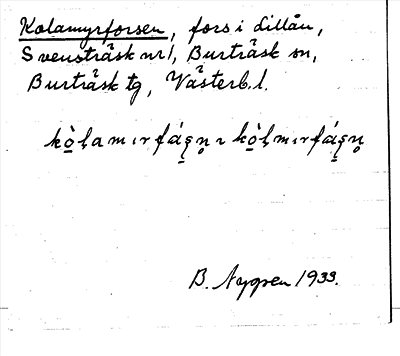 Kolamyrforsen, fors i Lillån,
Svensträsk nr 1, Burträsk sn,
Burträsk tg, Västerb. l.
kò̠l̥amırfá̠ʂn̥ ɿ kò̠l̥mırfá̠ʂn̥
B. Nygren 1933.